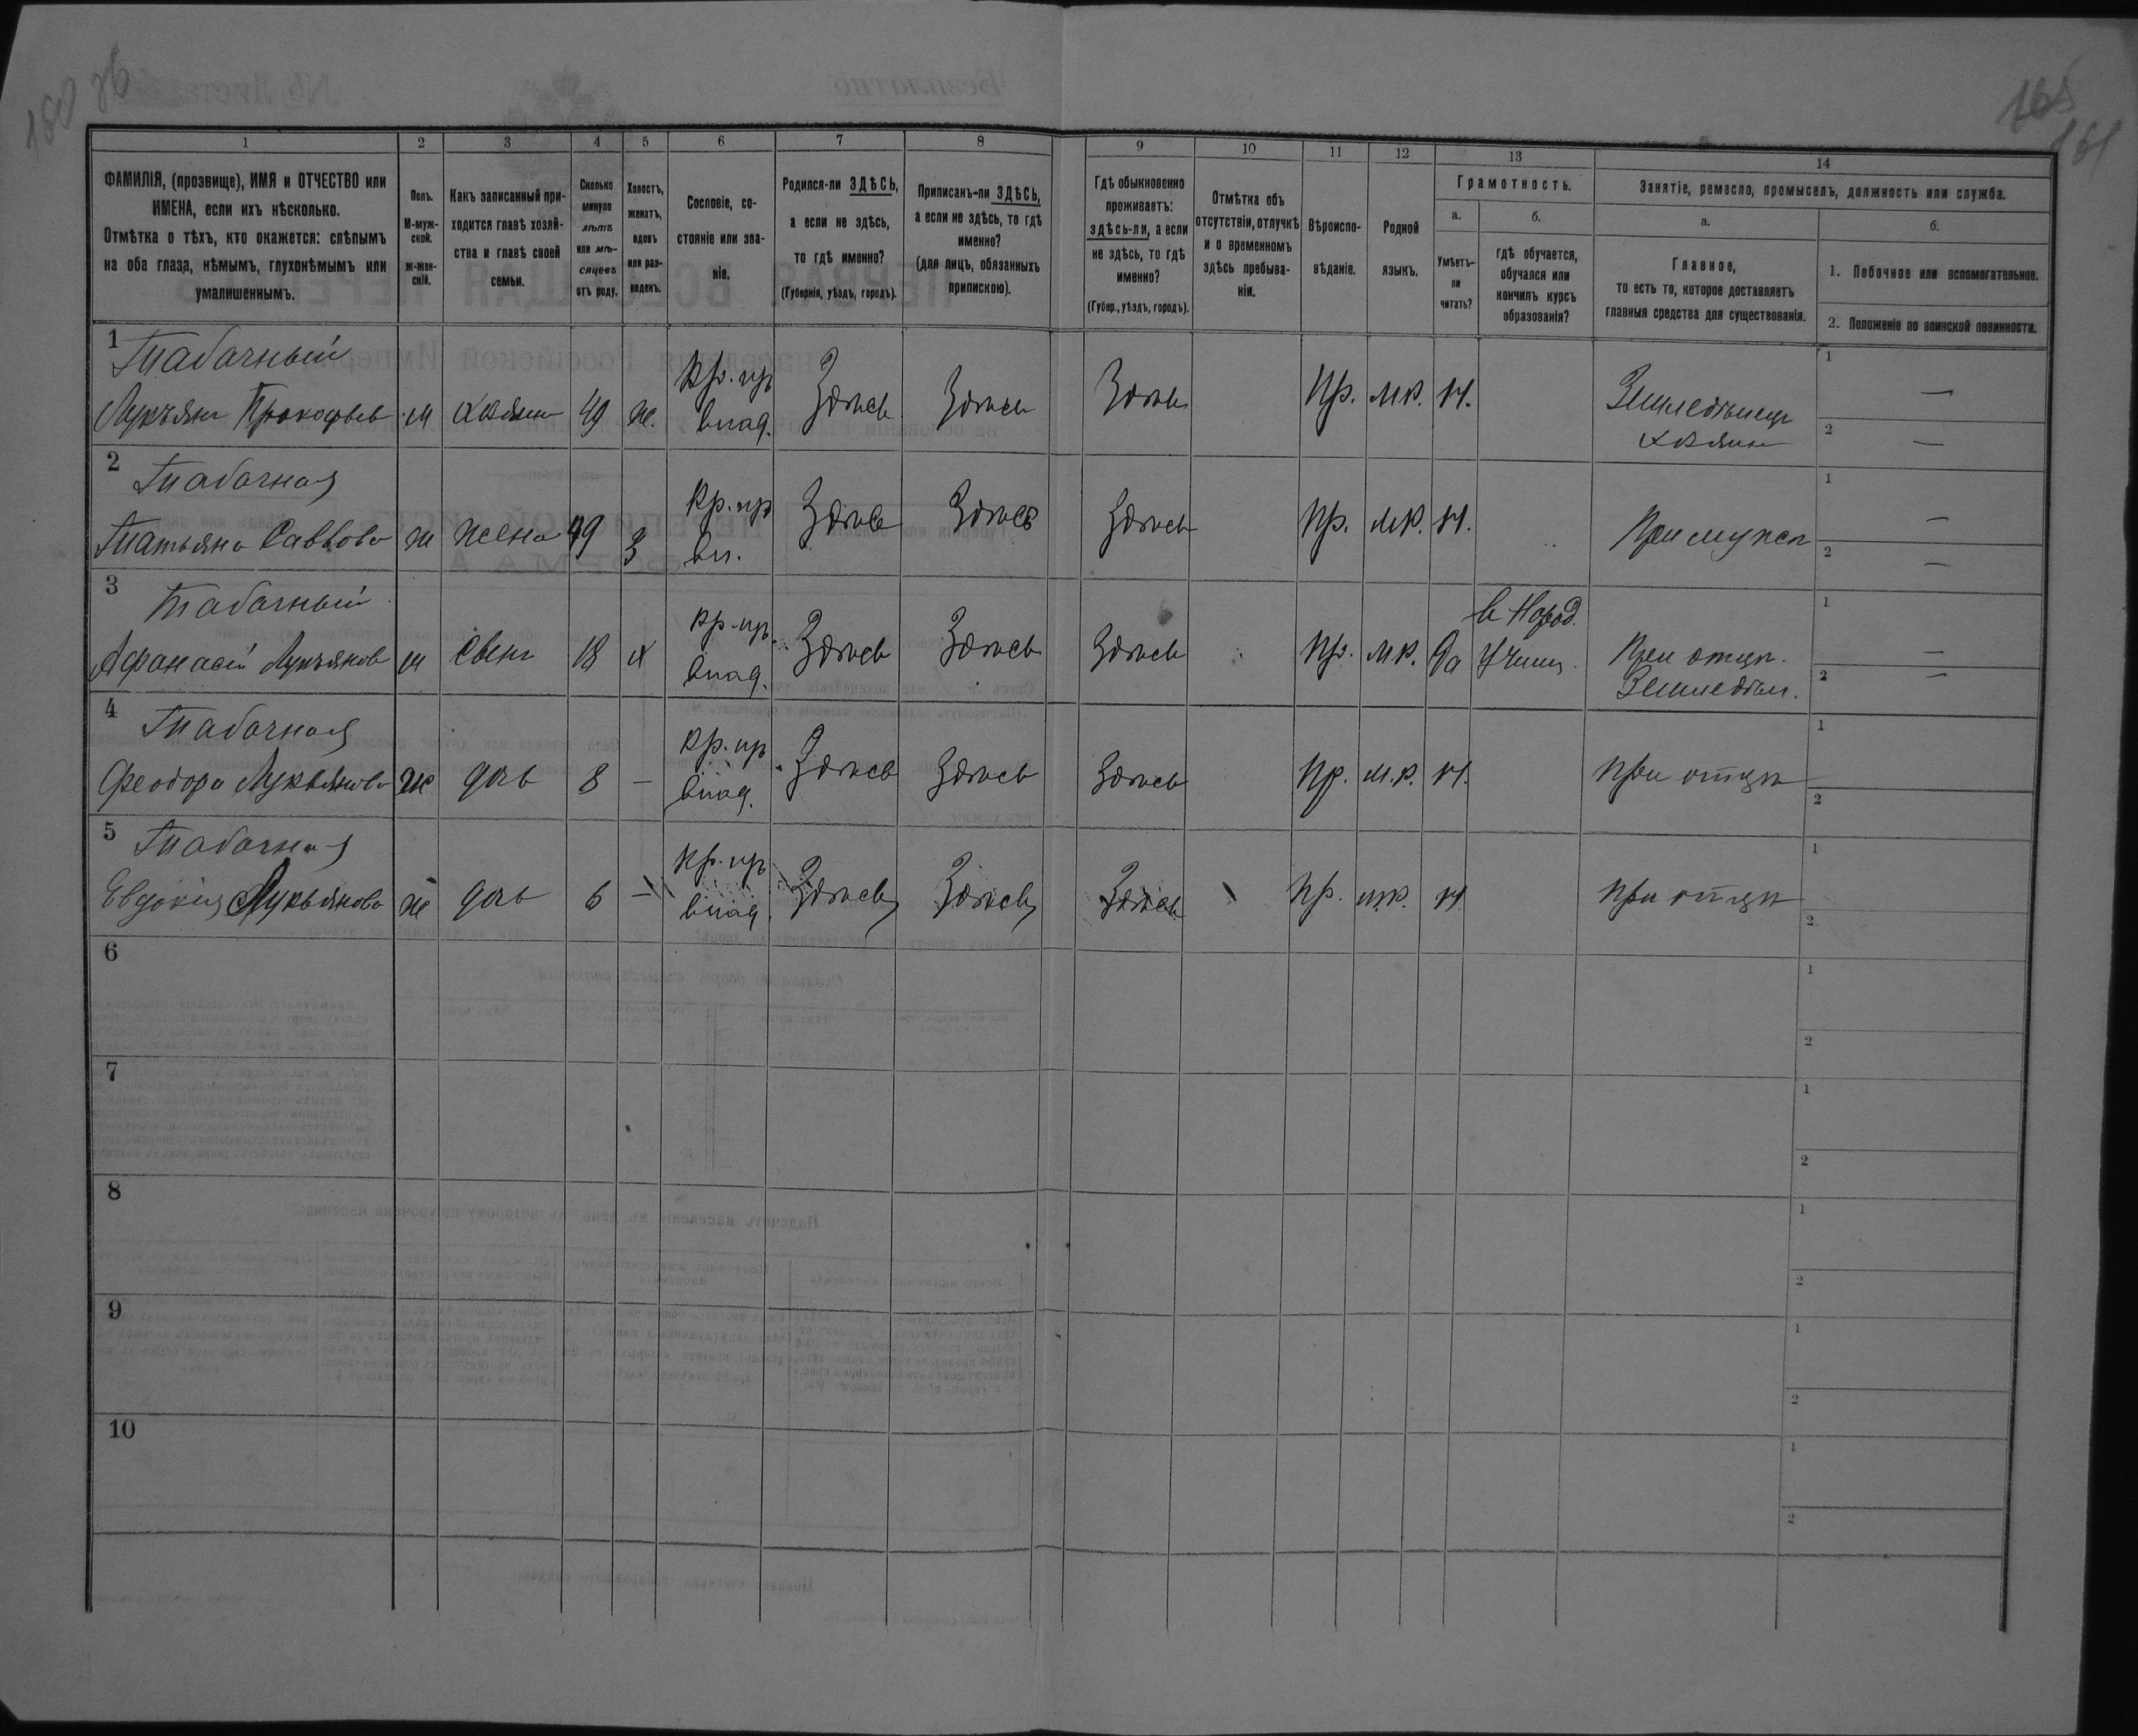 180 об
165
181
1
2
3
4
5
6
7
8
9
10
11
12
13
14
ФАМИЛІЯ, (прозвище), ИМЯ и ОТЧЕСТВО или
ИМЕНА, если ихъ нѣсколько.
Отмѣтка о тѣхъ, кто окажется: слѣпымъ
на оба глаза, нѣмымъ, глухонѣмымъ или
умалишеннымъ.
Полъ.
М-муж-
ской.
ж-жен-
скій.
Какъ записанный при-
ходится главѣ хозяй-
ства и главѣ своей
семьи.
Сколько
минуло
лѣтъ
или мѣ-
сяцевъ
отъ роду.
Холостъ,
женатъ,
вдовъ
или раз-
веденъ.
Сословіе, со-
стояніе или зва-
ніе.
Родился-ли ЗДѢСЬ,
а если не здѣсь,
то гдѣ именно?
(Губернія, уѣздъ, городъ).
Приписанъ-ли ЗДѢСЬ,
а если не здѣсь, то гдѣ
именно?
(для лицъ, обязанныхъ
припискою).
Гдѣ обыкновенно
проживаетъ:
здѣсь-ли, а если
не здѣсь, то гдѣ
именно?
(Губер., уѣздъ, городъ).
Отмѣтка объ
отсутствіи, отлучкѣ
и о временномъ
здѣсь пребыва-
ніи.
Вѣроиспо-
вѣданіе.
Родной
языкъ.
Грамотность.
а.
Умѣетъ-
ли
читать?
б.
гдѣ обучается,
обучался или
кончилъ курсъ
образованія?
Занятіе, ремесло, промыселъ, должность или служба.
а.
Главное,
то есть то, которое доставляетъ
главныя средства для существованія.
б.
1. Побочное или вспомогательное.
2. Положеніе по воинской повинности.
1
Табачный
Лукъянъ Прокофьев м хозяин 49 ж. Кр. из влад. Здѣсь Здѣсь Здѣсь Пр. мр. Н. Земледѣлец хозяин
1 —
2 —
2
Табачная
Татьяна Саввова ж жена 49 З Кр. из вл. Здѣсь Здѣсь Здѣсь Пр. мр. Н. При мужѣ
1 —
2 —
3
Табачный
Афанасій Лукъянов м Сынъ 18 х Кр. из влад. Здѣсь Здѣсь Здѣсь Пр. мр. Да в Народ. Учил. При отцѣ. Земледѣл.
1 —
2 —
4
Табачная
Феодора Лукьянова ж дочь 8 — Кр. из влад. Здѣсь Здѣсь Здѣсь Пр. м.р. Н. при отцѣ
1
2
5
Табачная
Евдокія Лукьянова ж дочь 6 — Кр. из влад. Здѣсь Здѣсь Здѣсь Пр. мр. Н при отцѣ
1
2
6
1
2
7
1
2
8
1
2
9
1
2
10
1
2